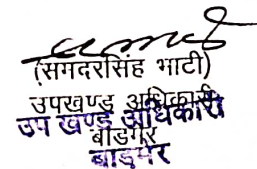 (समदरसिंह भाटी)
उपखण्ड अधिकारी
बाडमेर
उप खण्ड अधिकारी
बाड़मेर